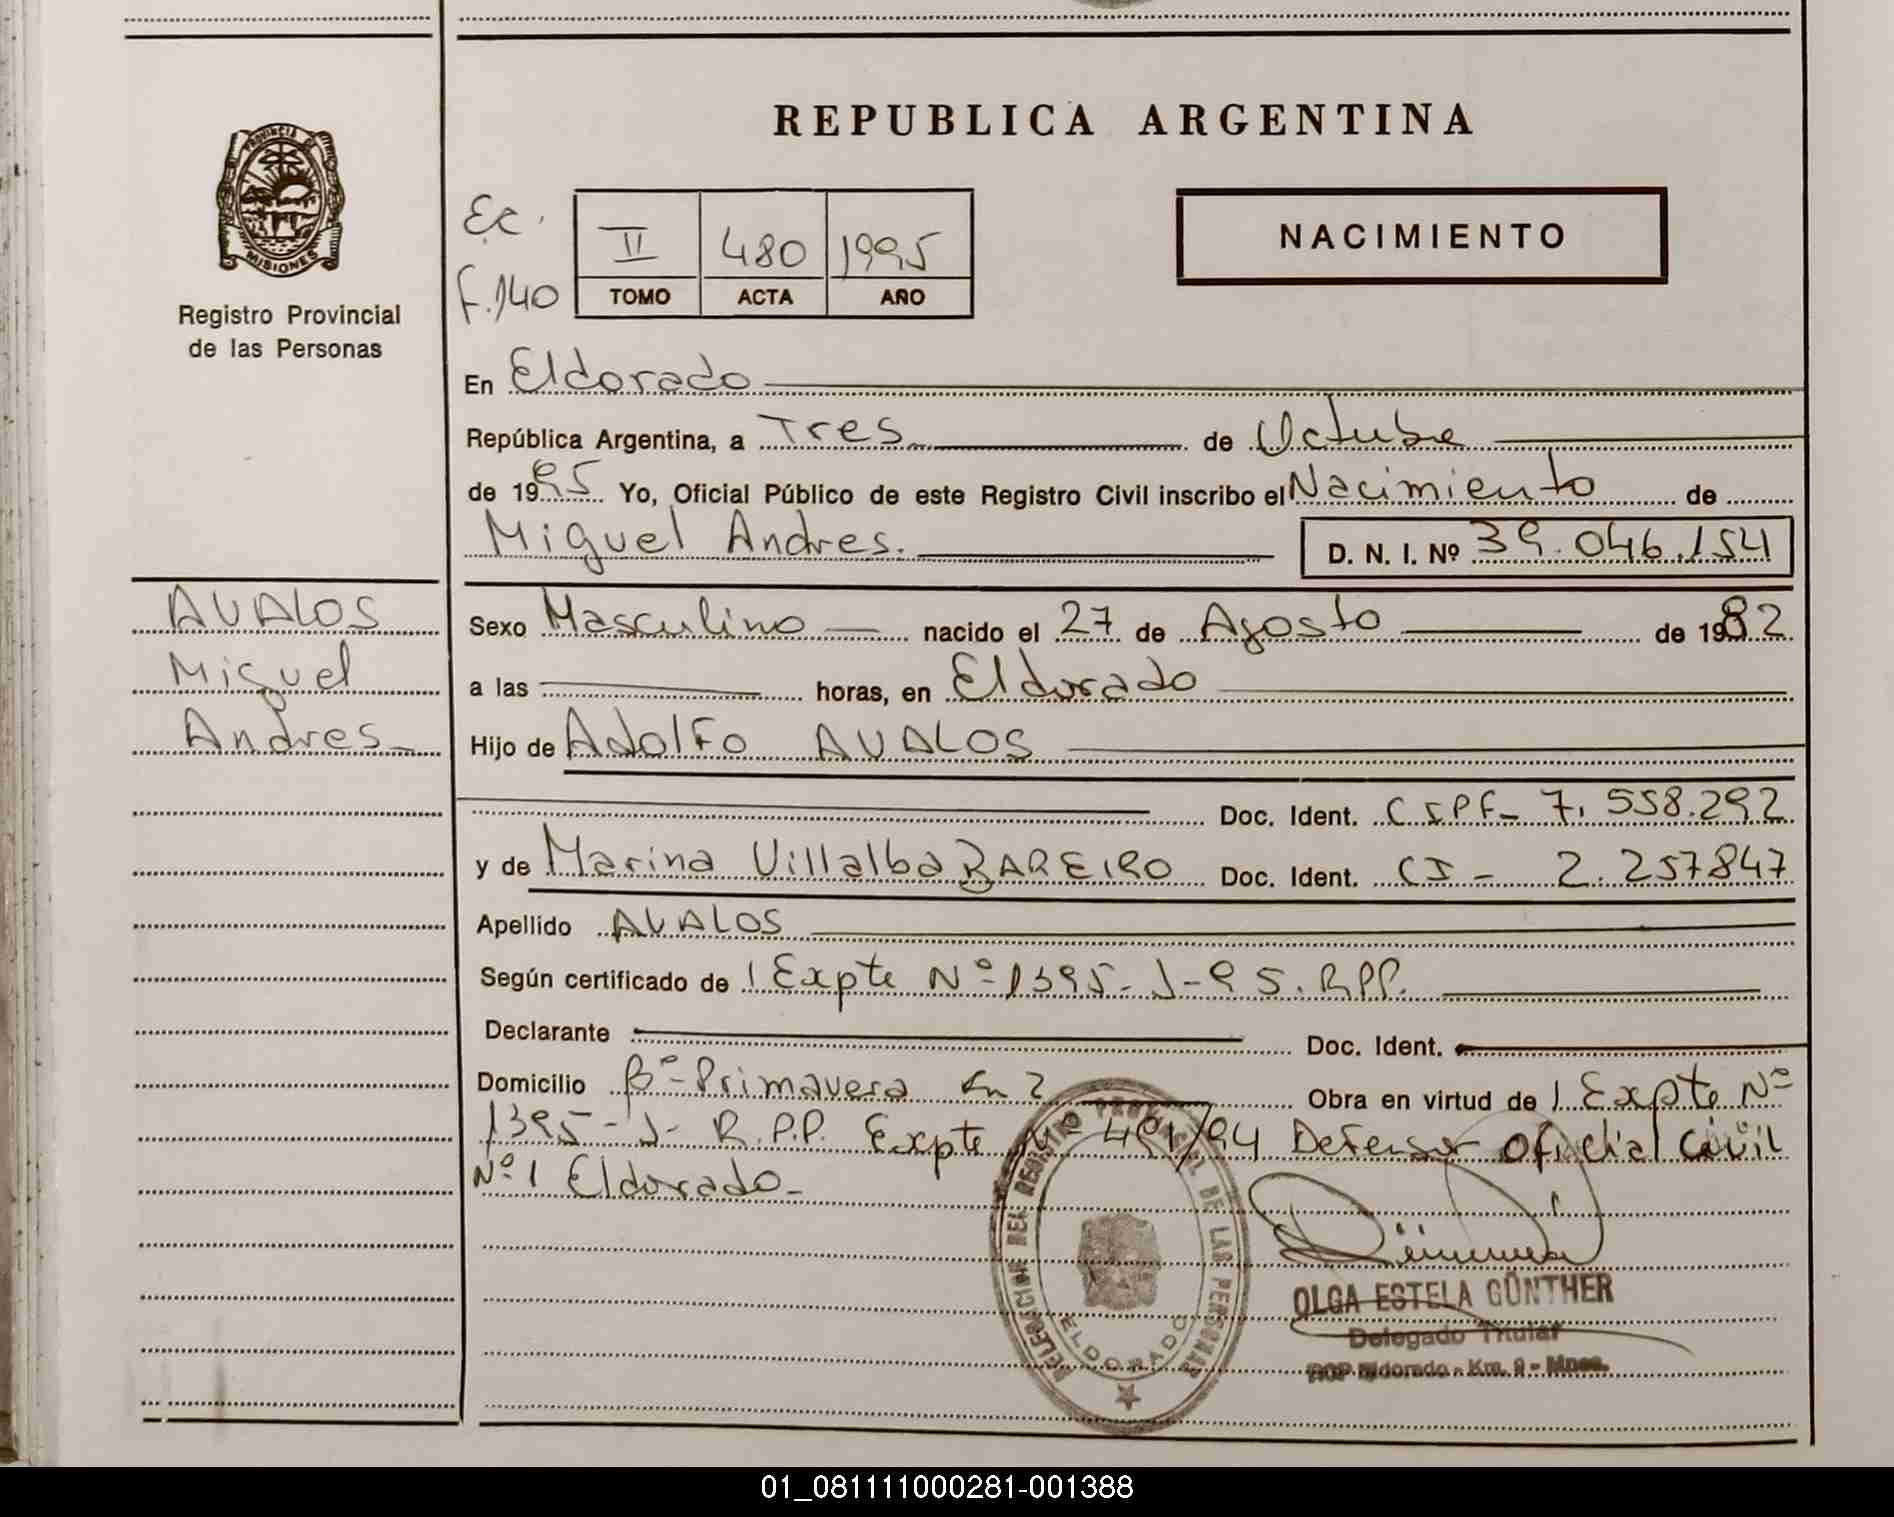 REPUBLICA ARGENTINA
PROVINCIA DE
MISIONES
Registro Provincial
de las Personas
Ec.
F.140
II 480 1995
TOMO ACTA AÑO
NACIMIENTO
En Eldorado
República Argentina, a Tres de Octubre
de 1995 Yo, Oficial Público de este Registro Civil inscribo el Nacimiento de
Miguel Andres. D. N. I. Nº 39.046.154
AVALOS
Miguel
Andres
Sexo Masculino nacido el 27 de Agosto de 1982
a las horas, en Eldorado
Hijo de Adolfo AVALOS
Doc. Ident. CIPF- 7.558.292
y de Marina Villalba BAREIRO Doc. Ident. CI - 2.257847
Apellido AVALOS
Según certificado de 1 Expte Nº 1395-J-95. RPP.
Declarante Doc. Ident.
Domicilio Bº-Primavera Km 2 Obra en virtud de 1 Expte Nº
1395-J- R.P.P. Expte Nº 491/94 Defensor Oficial Civil
Nº 1 Eldorado-
DELEGACION DEL REGISTRO PROVINCIAL DE LAS PERSONAS
ELDORADO
OLGA ESTELA GÜNTHER
Delegado Titular
Eldorado - Km. 9 - Mnes.
01_081111000281-001388